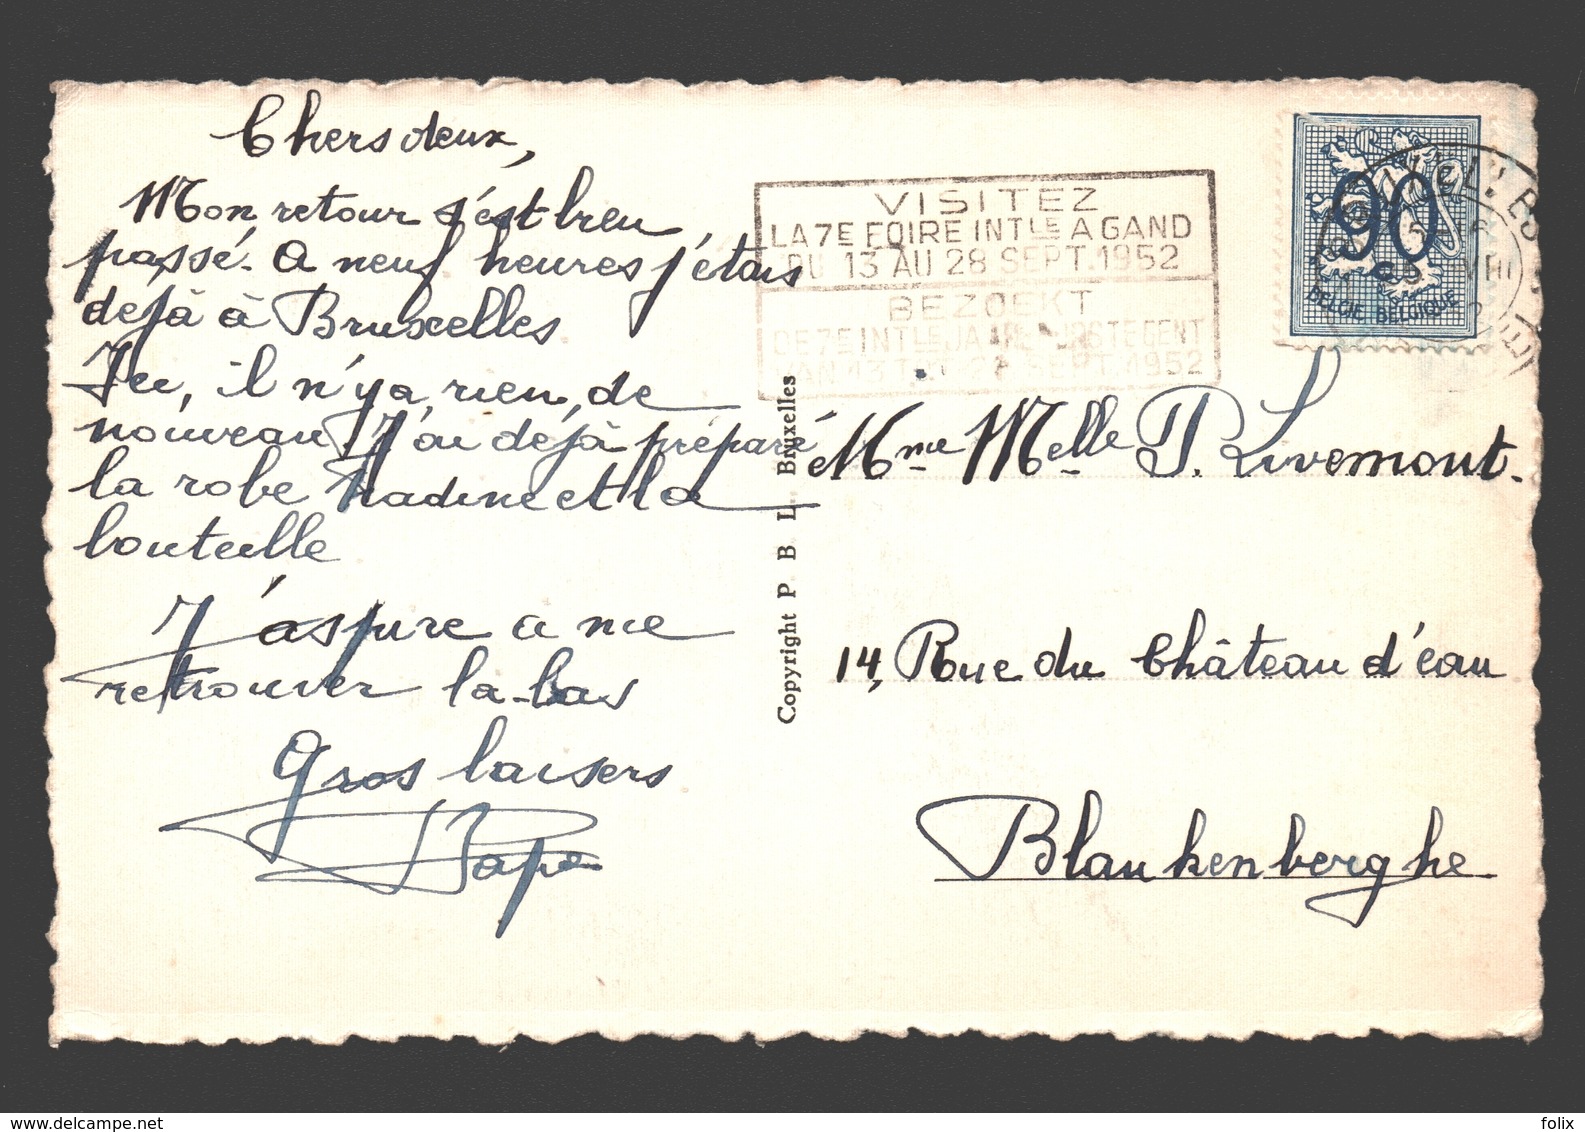 Chers deux,
Mon retour s'est bien
passé. A neuf heures j'étais
déjà à Bruxelles
Ici, il n'y a rien, de
nouveau! J'ai déjà préparé
la robe Nadine et la
bouteille
J'aspire a me
retrouver la-bas
Gros baisers
Papa
VISITEZ
LA 7E FOIRE INTLE A GAND
DU 13 AU 28 SEPT. 1952
BEZOEKT
DE 7E INTLE JAARBEURS TE GENT
VAN 13 TOT 28 SEPT. 1952
90
BELGIE-BELGIQUE
Copyright P B L. Bruxelles
Mme Melle P. Livemont.
14, Rue du Château d'eau
Blankenberghe
delcampe.net
folix